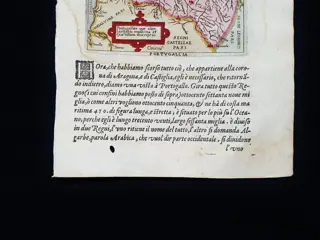 REGNI
CASTELLAE
PARS
PORTVGALLIA
HOra, che habbiamo scorso tutto ciò, che appartiene alla coro-
na di Aragona, e di Castiglia, egli è necessario, che ritornã-
do indietro, diamo una vista à Portogallo. Gira tutto questo Re-
gno (i cui confini habbiamo posto di sopra) ottocento settanta noue mi-
glia, e come altri vogliono ottocento cinquanta, & ne hà di costa ma-
ritima 470. di figura lunga, e stretta, è situato per lo più sù l'Ocea-
no, perche egli è lungo trecento venti, largo sessanta miglia. è diuiso
in due Regni, l'uno ritiene il nome del tutto, l'altro si domanda Al-
garbe, parola Arabica, che vuol dir parte occidentale. si diuidono
l'uno